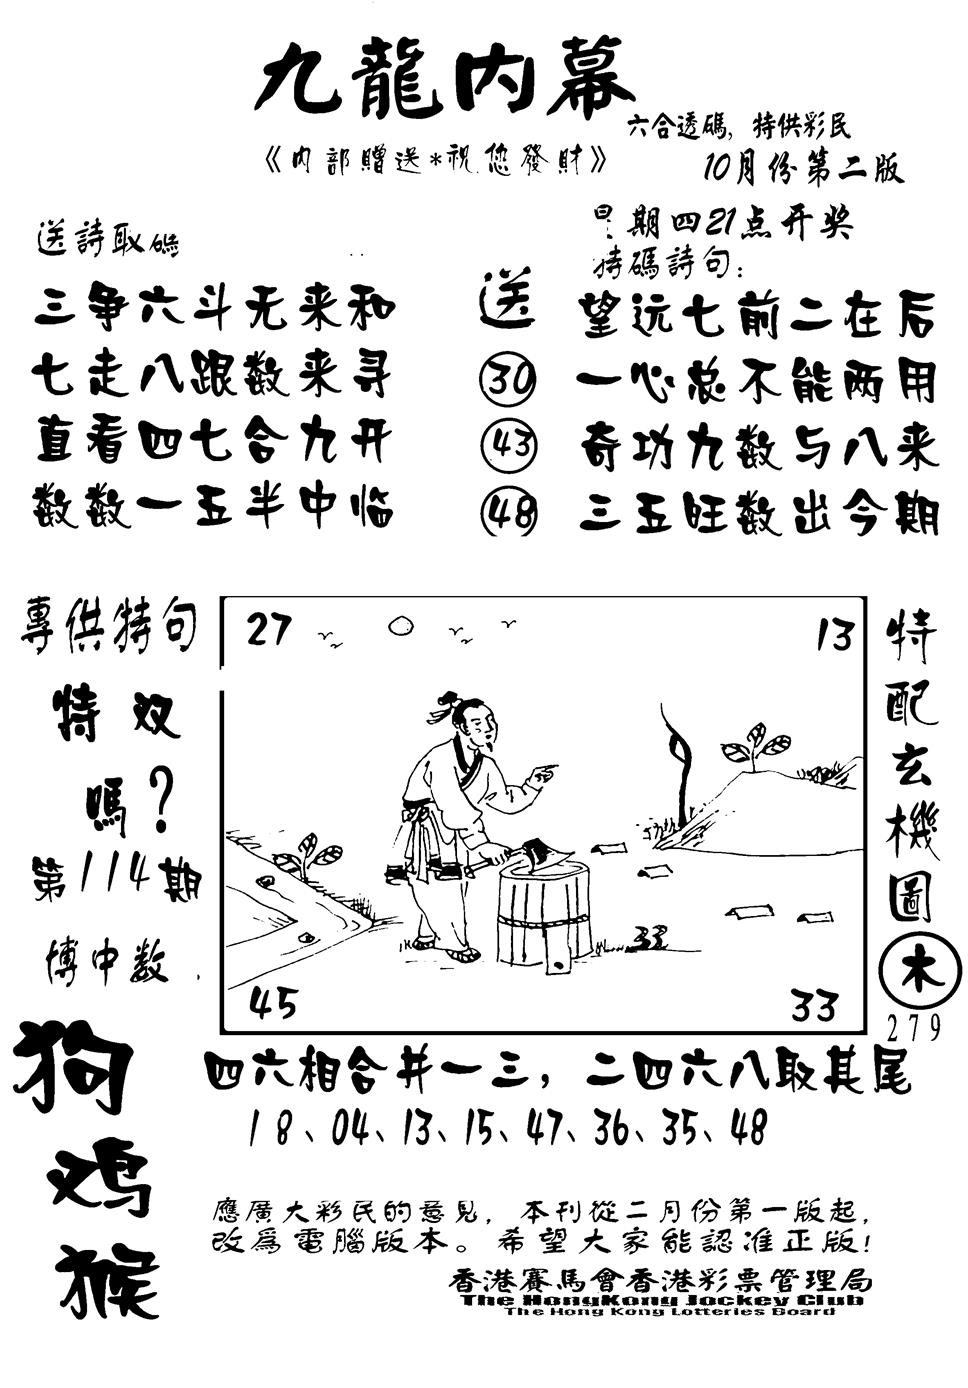 九龍内幕
六合透碼，特供彩民
《内部贈送*祝您發財》
10月份第二版
期四21点开奖
送詩取碼
特碼詩句：
三争六斗无来和
七走八跟数来寻
直看四七合九开
数数一五半中临
送
30
43
48
望远七前二在后
一心总不能两用
奇功九数与八来
三五旺数出今期
專供特句
特效
嗎？
第114期
博中数
狗
鸡
猴
27
13
33
45
33
特配玄機圖
木
279
四六相合井一三，二四六八取其尾
18、04、13、15、47、36、35、48
應廣大彩民的意見，本刊從二月份第一版起，
改爲電腦版本。希望大家能認准正版！
香港賽馬會香港彩票管理局
The HongKong Jockey Club
The Hong Kong Lotteries Board